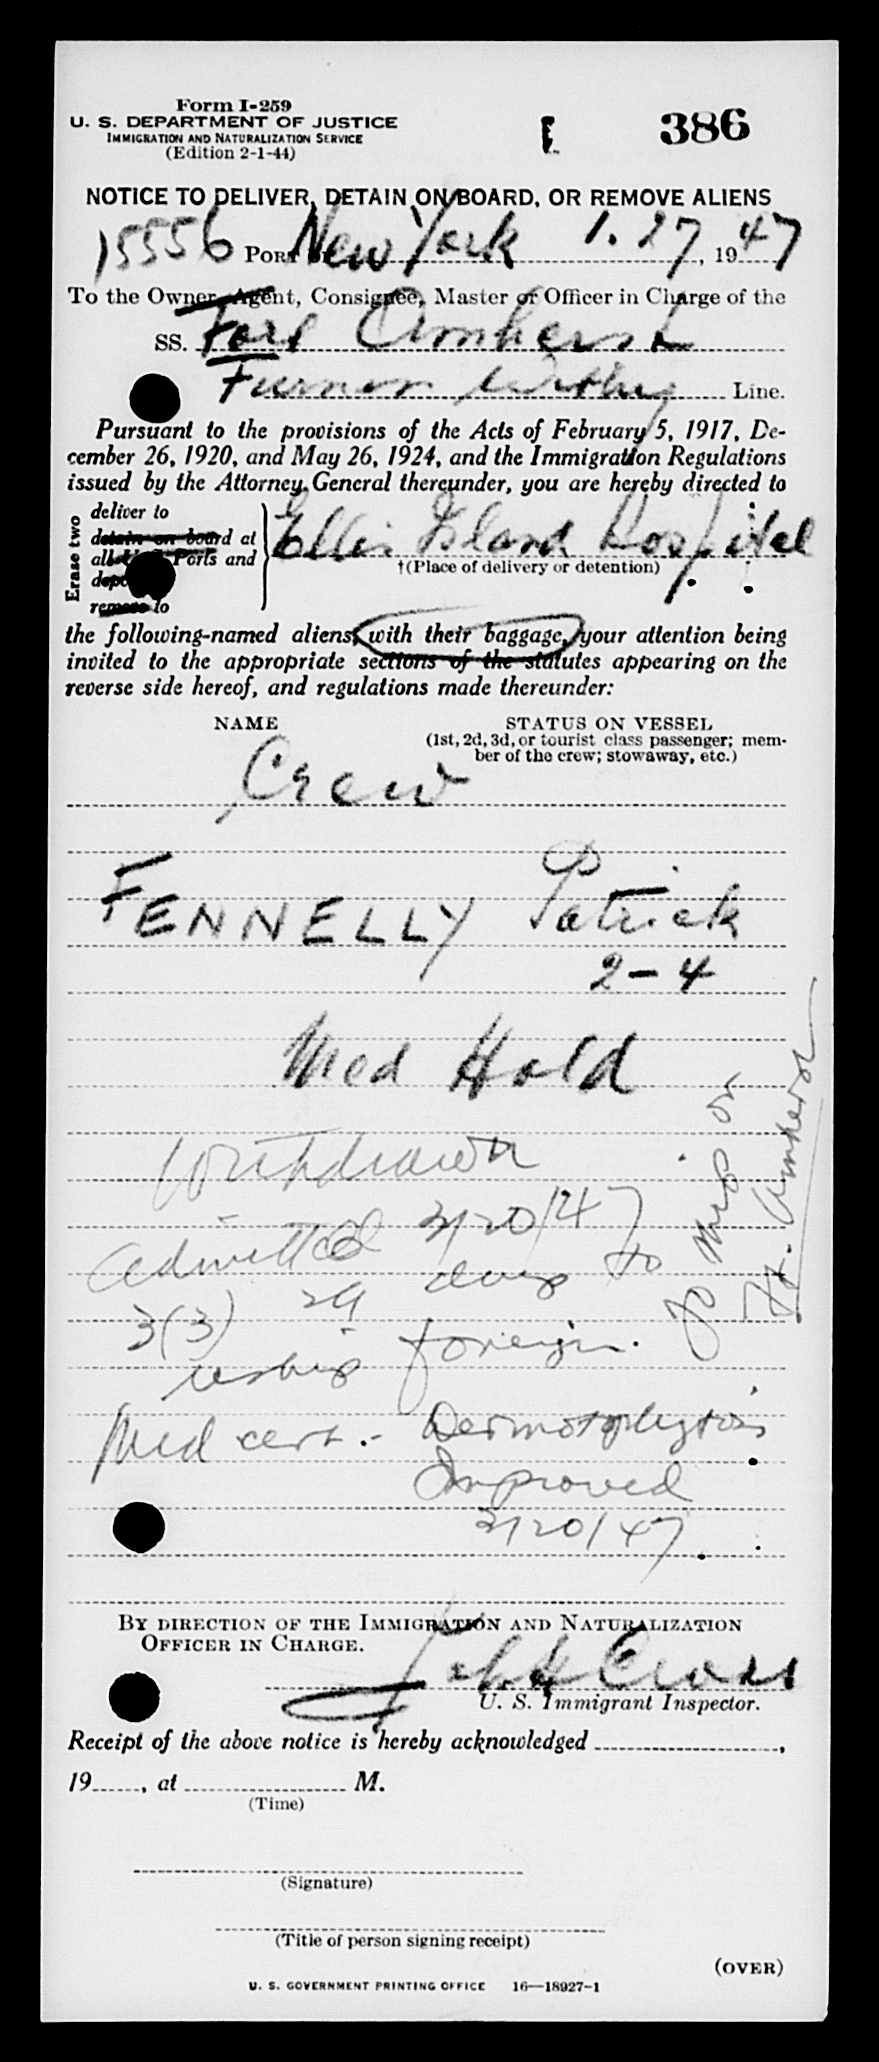 Form I-259
U. S. DEPARTMENT OF JUSTICE
IMMIGRATION AND NATURALIZATION SERVICE
(Edition 2-1-44)
386
NOTICE TO DELIVER, DETAIN ON BOARD, OR REMOVE ALIENS
15556 PORT OF New York 1. 27, 1947
To the Owner, Agent, Consignee, Master or Officer in Charge of the
SS. Fort Amherst
Furness Withy Line.
Pursuant to the provisions of the Acts of February 5, 1917, De-
cember 26, 1920, and May 26, 1924, and the Immigration Regulations
issued by the Attorney General thereunder, you are hereby directed to
Erase two
deliver to
detain on board at
all U. S. Ports and
deport
remove to
Ellis Island Hospital
†(Place of delivery or detention)
the following-named aliens, with their baggage, your attention being
invited to the appropriate sections of the statutes appearing on the
reverse side hereof, and regulations made thereunder:
NAME STATUS ON VESSEL
(1st, 2d, 3d, or tourist class passenger; mem-
ber of the crew; stowaway, etc.)
Crew
FENNELLY Patrick
2-4
Med Hold
Withdrawn
Admitted 3/20/47
3(3) 29 days to
reship foreign.
To ship on
Ft. Amherst
Med cert. - Dermatophytosis
Improved
3/20/47
BY DIRECTION OF THE IMMIGRATION AND NATURALIZATION
OFFICER IN CHARGE.
Cross
U. S. Immigrant Inspector.
Receipt of the above notice is hereby acknowledged ,
19 , at M.
(Time)
(Signature)
(Title of person signing receipt)
(OVER)
U. S. GOVERNMENT PRINTING OFFICE 16—18927-1